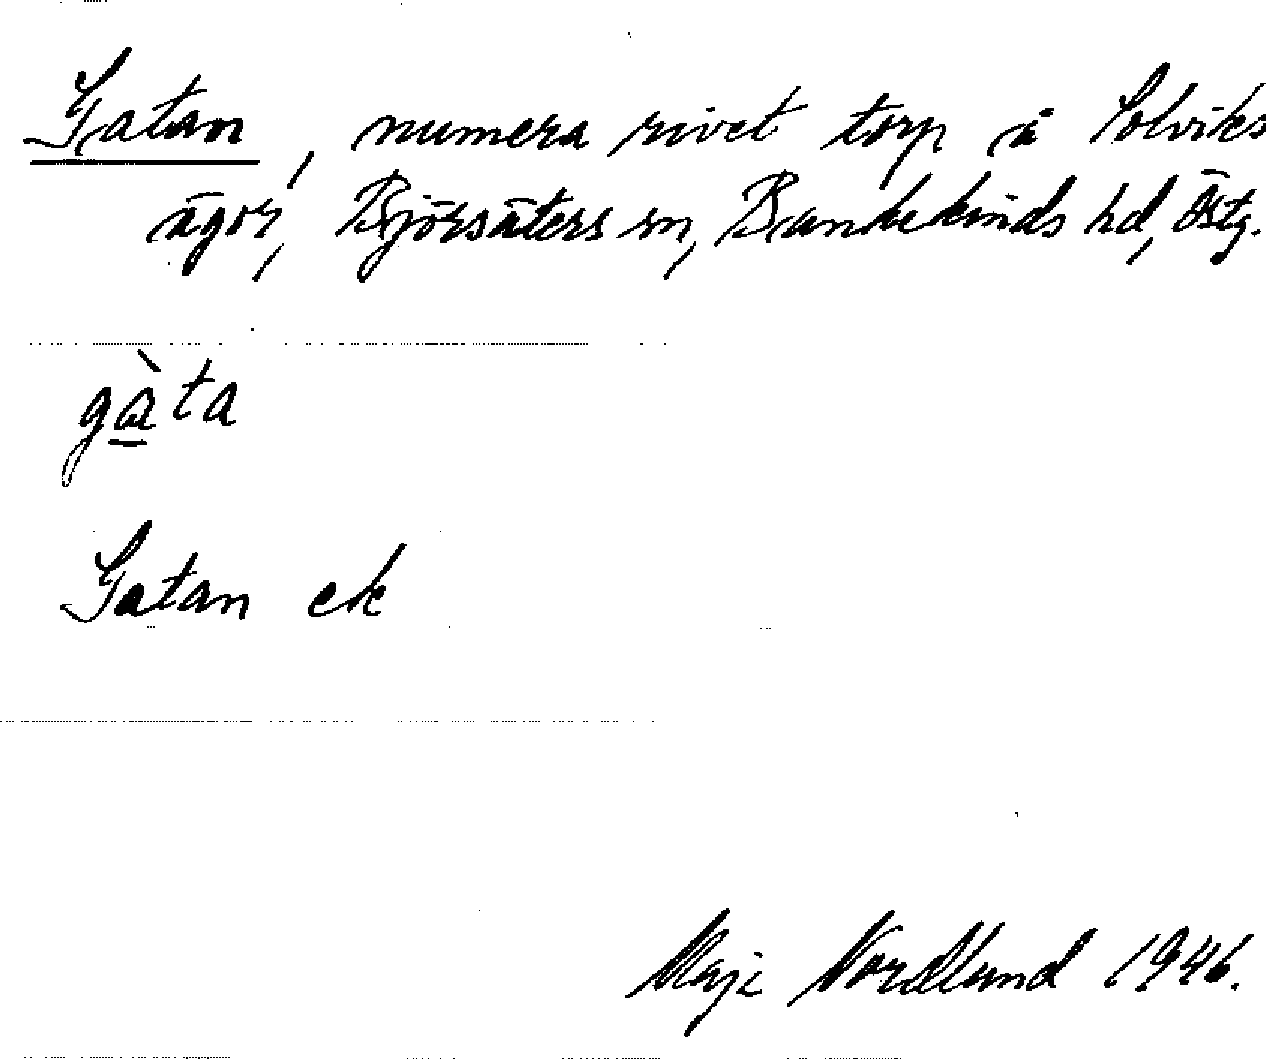 Gatan, numera rivet torp å Solviks
ägor, Björsäters sn, Bankekinds hd, Östg.
gàta
Gatan ek
Maji Nordlund 1946.